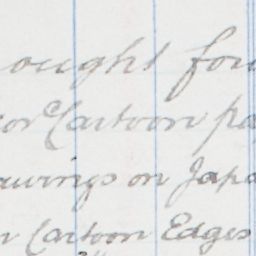 ought fou
or Cartoon pa
awings on Japa
n Cartoon Edges